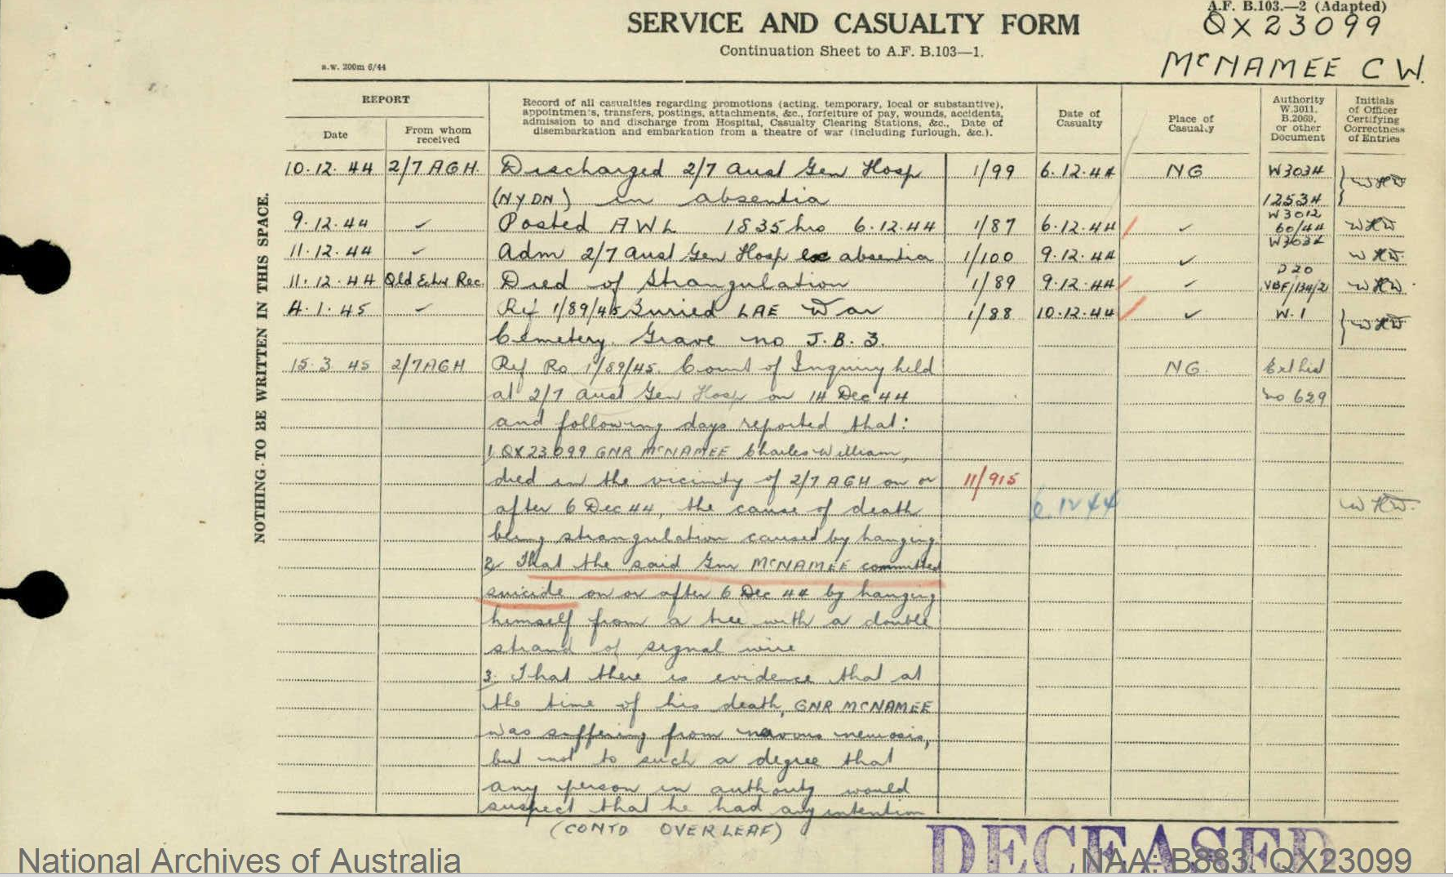 A.F. B.103.—2 (Adapted)
QX23099
SERVICE AND CASUALTY FORM
Continuation Sheet to A.F. B.103—1.
McNAMEE C W.
a.w. 200m 6/44
REPORT
Date
From whom received
Record of all casualties regarding promotions (acting, temporary, local or substantive), appointments, transfers, postings, attachments, &c., forfeiture of pay, wounds, accidents, admission to and discharge from Hospital, Casualty Clearing Stations, &c., Date of disembarkation and embarkation from a theatre of war (including furlough, &c.).
Date of Casualty
Place of Casualty
Authority W.3011, B.2069, or other Document
Initials of Officer Certifying Correctness of Entries
NOTHING TO BE WRITTEN IN THIS SPACE.
10.12.44 2/7 AGH. Discharged 2/7 Aust Gen Hosp 1/99 6.12.44 NG W3034
(NYDN) in absentia 12534
9.12.44 ✓ Posted AWL 1835 hrs 6.12.44 1/87 6.12.44 ✓ W3012 60/44
11.12.44 ✓ Adm 2/7 Aust Gen Hosp ex absentia 1/100 9.12.44 ✓ W3034
11.12.44 Qld Ech Rec. Died of Strangulation 1/89 9.12.44 ✓ D20
4.1.45 ✓ Ref 1/89/45 Buried LAE War 1/88 10.12.44 ✓ W.1
Cemetery Grave no J.B.3.
15.3.45 2/7 AGH Ref Ro 1/89/45. Court of Inquiry held NG.
at 2/7 Aust Gen Hosp on 14 Dec 44 no 629
and following days reported that:
1. QX23099 GNR McNAMEE Charles William,
died in the vicinity of 2/7 AGH on or 11/915
after 6 Dec 44, the cause of death 6 12 44
being strangulation caused by hanging
2. That the said Gnr McNAMEE committed
suicide on or after 6 Dec 44 by hanging
himself from a tree with a double
strand of signal wire
3. That there is evidence that at
the time of his death, GNR McNAMEE
was suffering from
but not to such a degree that
any person in authority would
suspect that he had any intention
(CONTD OVERLEAF)
DECEASED
National Archives of Australia
NAA: B883, QX23099